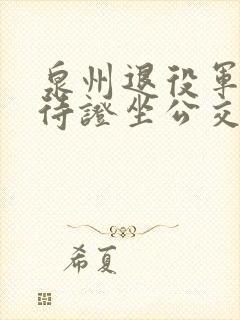 泉州退役軍
待證坐公交
希夏